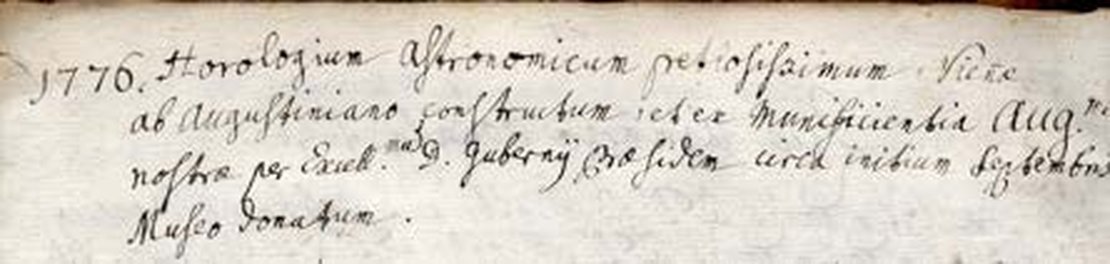 1776. Horologium Astronomicum pretiosissimum, Vieñe
ab Augustiniano constructum, et ex Munificientia Aug.
nostræ per Excell.mum D. Gubernij Præsidem circa initium Septembris
Museo donatum.